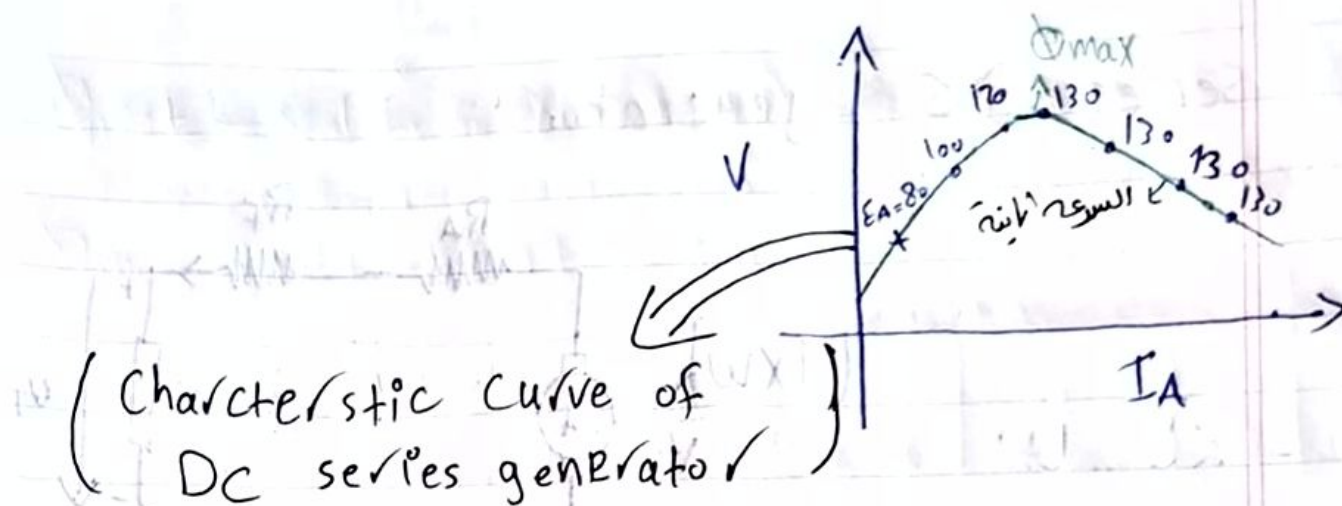 Φmax
120 130
V 100 130
EA=80 130
السرعه ثابتة 130
IA
(Charcterstic curve of
DC series generator)